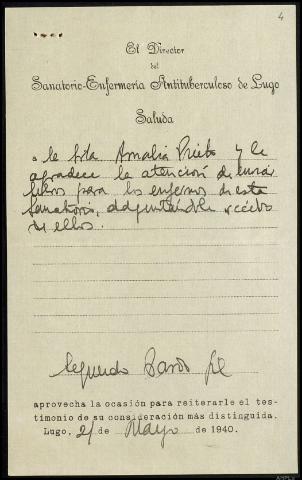 4
El Director
del
Sanatorio-Enfermería Antituberculoso de Lugo
Saluda
a la Srta Amalia Prieto y le
agradece la atención de enviar
libros para los enfermos de este
Sanatorio, adjuntándole recibo
de ellos.
Segundo Gil
aprovecha la ocasión para reiterarle el tes-
timonio de su consideración más distinguida.
Lugo, 21 de Mayo de 1940.